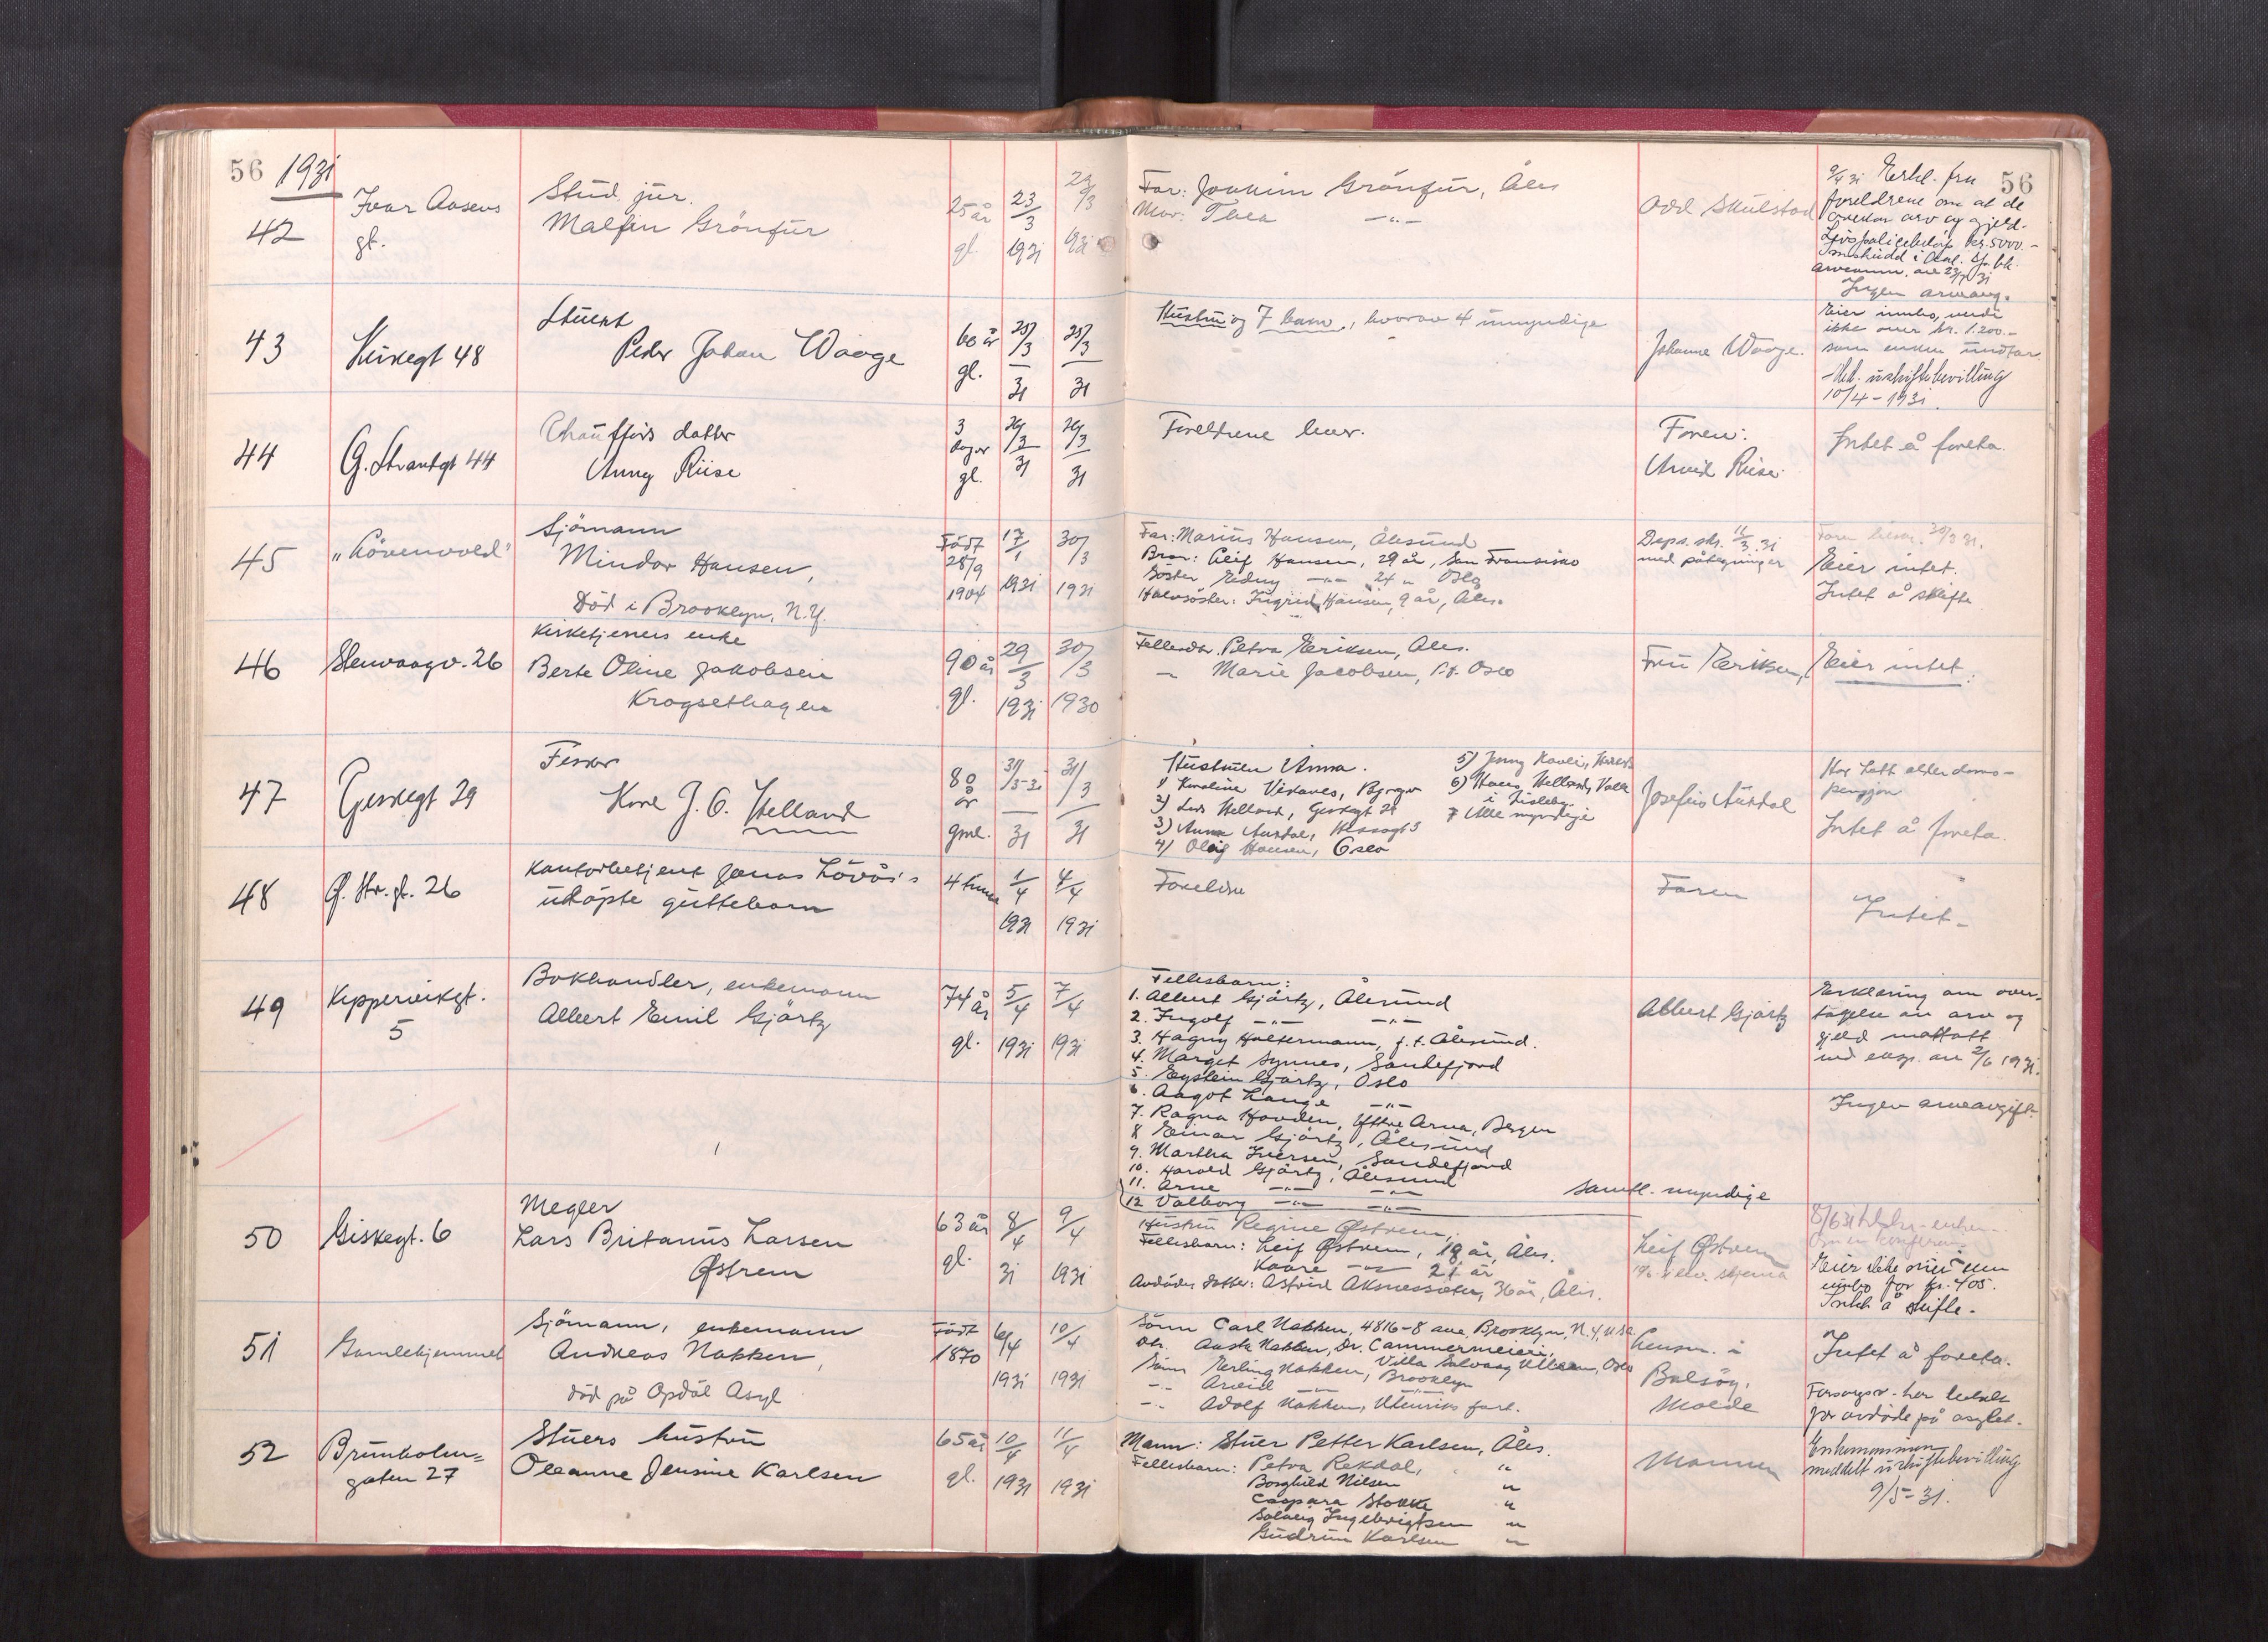 56 1931
56
42
Ivar Aasens
gt.
Stud. jur.
Malfin Grönfur
25 år
gl.
23/3
1931
23/3
1931
Far: Joakim Grönfur, Åles
Mor: Thea —"—
Odd Skulstad
9/4 31 Erkl. fra
foreldrene om at de
overtar arv og gjeld.
kr. 5000.-
Ingen arveavg.
43
Kirkegt 48
Stuert
Peder Johan Waage
60 år
gl.
25/3
31
25/3
31
Hustru og 7 barn, hvorav 4 umyndige
Johanne Waage.
Eier innbo, verdi
ikke over kr. 1.200.-
som enken undtar.
Med. uskiftebevilling
10/4-1931.
44
G. Strandgt 44
Chaufførs datter
Anny Riise
3
dager
gl.
29/3
31
29/3
31
Foreldrene lever.
Faren:
Arvid Riise.
Intet å foreta.
45
"Lövenvold"
Sjömann
Mindor Hansen,
Död i Brooklyn, N.Y.
Född
28/9
1904
17/1
1931
30/3
1931
Far: Marius Hansen, Ålesund
Bror: Leif Hansen, 29 år, San Fransisko
Söster Edny —"— 24 " Oslo
Halvsöster: Ingrid Hansen, 9 år, Åles.
Deps. skr. 11/3 31
med påtegninger
30/3 31.
Eier intet.
Intet å skifte
46
Stenvaagv. 26
Kirketjeners enke
Berte Oline Jakobsen
Krogsethagen
90 år
gl.
29/3
1931
30/3
1930
Fellesdtr. Petra Eriksen, Åles.
— Marie Jacobsen, p.t. Oslo
Fru Eriksen,
Eier intet.
47
Giskegt 29
Fisker
Karl J. O. Helland
80
år
gml.
31/3-31
31
31/3
31
Hustruen Anna.
1) Karoline Viknaes, Bergen
2) Lars Helland, Giskegt 29
3) Anna Aurdal, Hessagt 3
4) Olaug Hansen, Oslo
5) Jenny
6) Hans Helland, Valle
i Lisleby.
7 Alle myndige
Josefine Aurdal
Har hatt alderdoms-
pensjon
Intet å foreta.
48
Ø. Str. gt. 26
Kontorbetjent Jonas Lövås's
udöpte guttebarn
4 timer
1/4
1931
4/4
1931
Foreldre
Faren
Intet-
49
Kippervikgt.
5
Bokhandler, enkemann
Albert Emil Gjörtz
74 år
gl.
5/4
1931
7/4
1931
Fellesbarn:
1. Albert Gjörtz, Ålesund
2. Ingolf —"— —"—
3. Hagny Holtermann, p.t. Ålesund.
4. Marget Synnes, Sandefjord
5. Eystein Gjörtz, Oslo
6. Aagot Lange —"—
7. Ragna Hovden, Yttre Arna, Bergen
8 Einar Gjörtz, Ålesund
9. Martha Iversen, Sandefjord
10. Harald Gjörtz, Ålesund
11. Arne —"— —"—
12 Valborg —"— —"—
samtl. myndige
Albert Gjörtz
Erklæring om over-
tagelse av arv og
gjeld mottatt
ved eksp. av 2/6 1931.
Ingen arveavgift.
50
Giskegt. 6
Megler
Lars Britanus Larsen
Østrem
63 år
gl.
8/4
31
9/4
1931
Hustru Regine Østrem,
Fellesbarn: Leif Østrem, 18 år, Åles.
Kaare —"— 21 år
Avdödes datter: Astrid Aksnessæter, 36 år, Åles.
Leif Østrem
8/6 31
Eier ikke mer enn
innbo for kr. 405.
Intet å skifte.
51
Gamlehjemmet
Sjömann, enkemann
Andreas Nakken,
död på Opdöl Asyl
Född
1870
6/4
1931
10/4
1931
Sönn Carl Nakken, 4816-8 ave, Brooklyn, N.Y, USA
Dtr. Aasta Nakken, Dr. Cammermeier,
Villa Solvaag Ullern, Oslo
Sönn Erling Nakken, Brooklyn
—"— Arvid —"— —"—
—"— Adolf Nakken, Utenriks fart.
Lensm. i
Bolsöy,
Molde
Intet å foreta.
Forsorgsv. har betalt
for avdöde på asylet.
52
Brunholm=
gaten 27
Stuers hustru
Oleanne Jensine Karlsen
65 år
gl.
10/4
1931
11/4
1931
Mann: Stuer Petter Karlsen, Åles.
Fellesbarn: Petra Rekdal, "
Borghild Nilsen "
Caspara Stokke "
Solveig Ingebrigtsen "
Gudrun Karlsen "
Mannen
Enkemannen
meddelt uskiftebevilling
9/5-31.